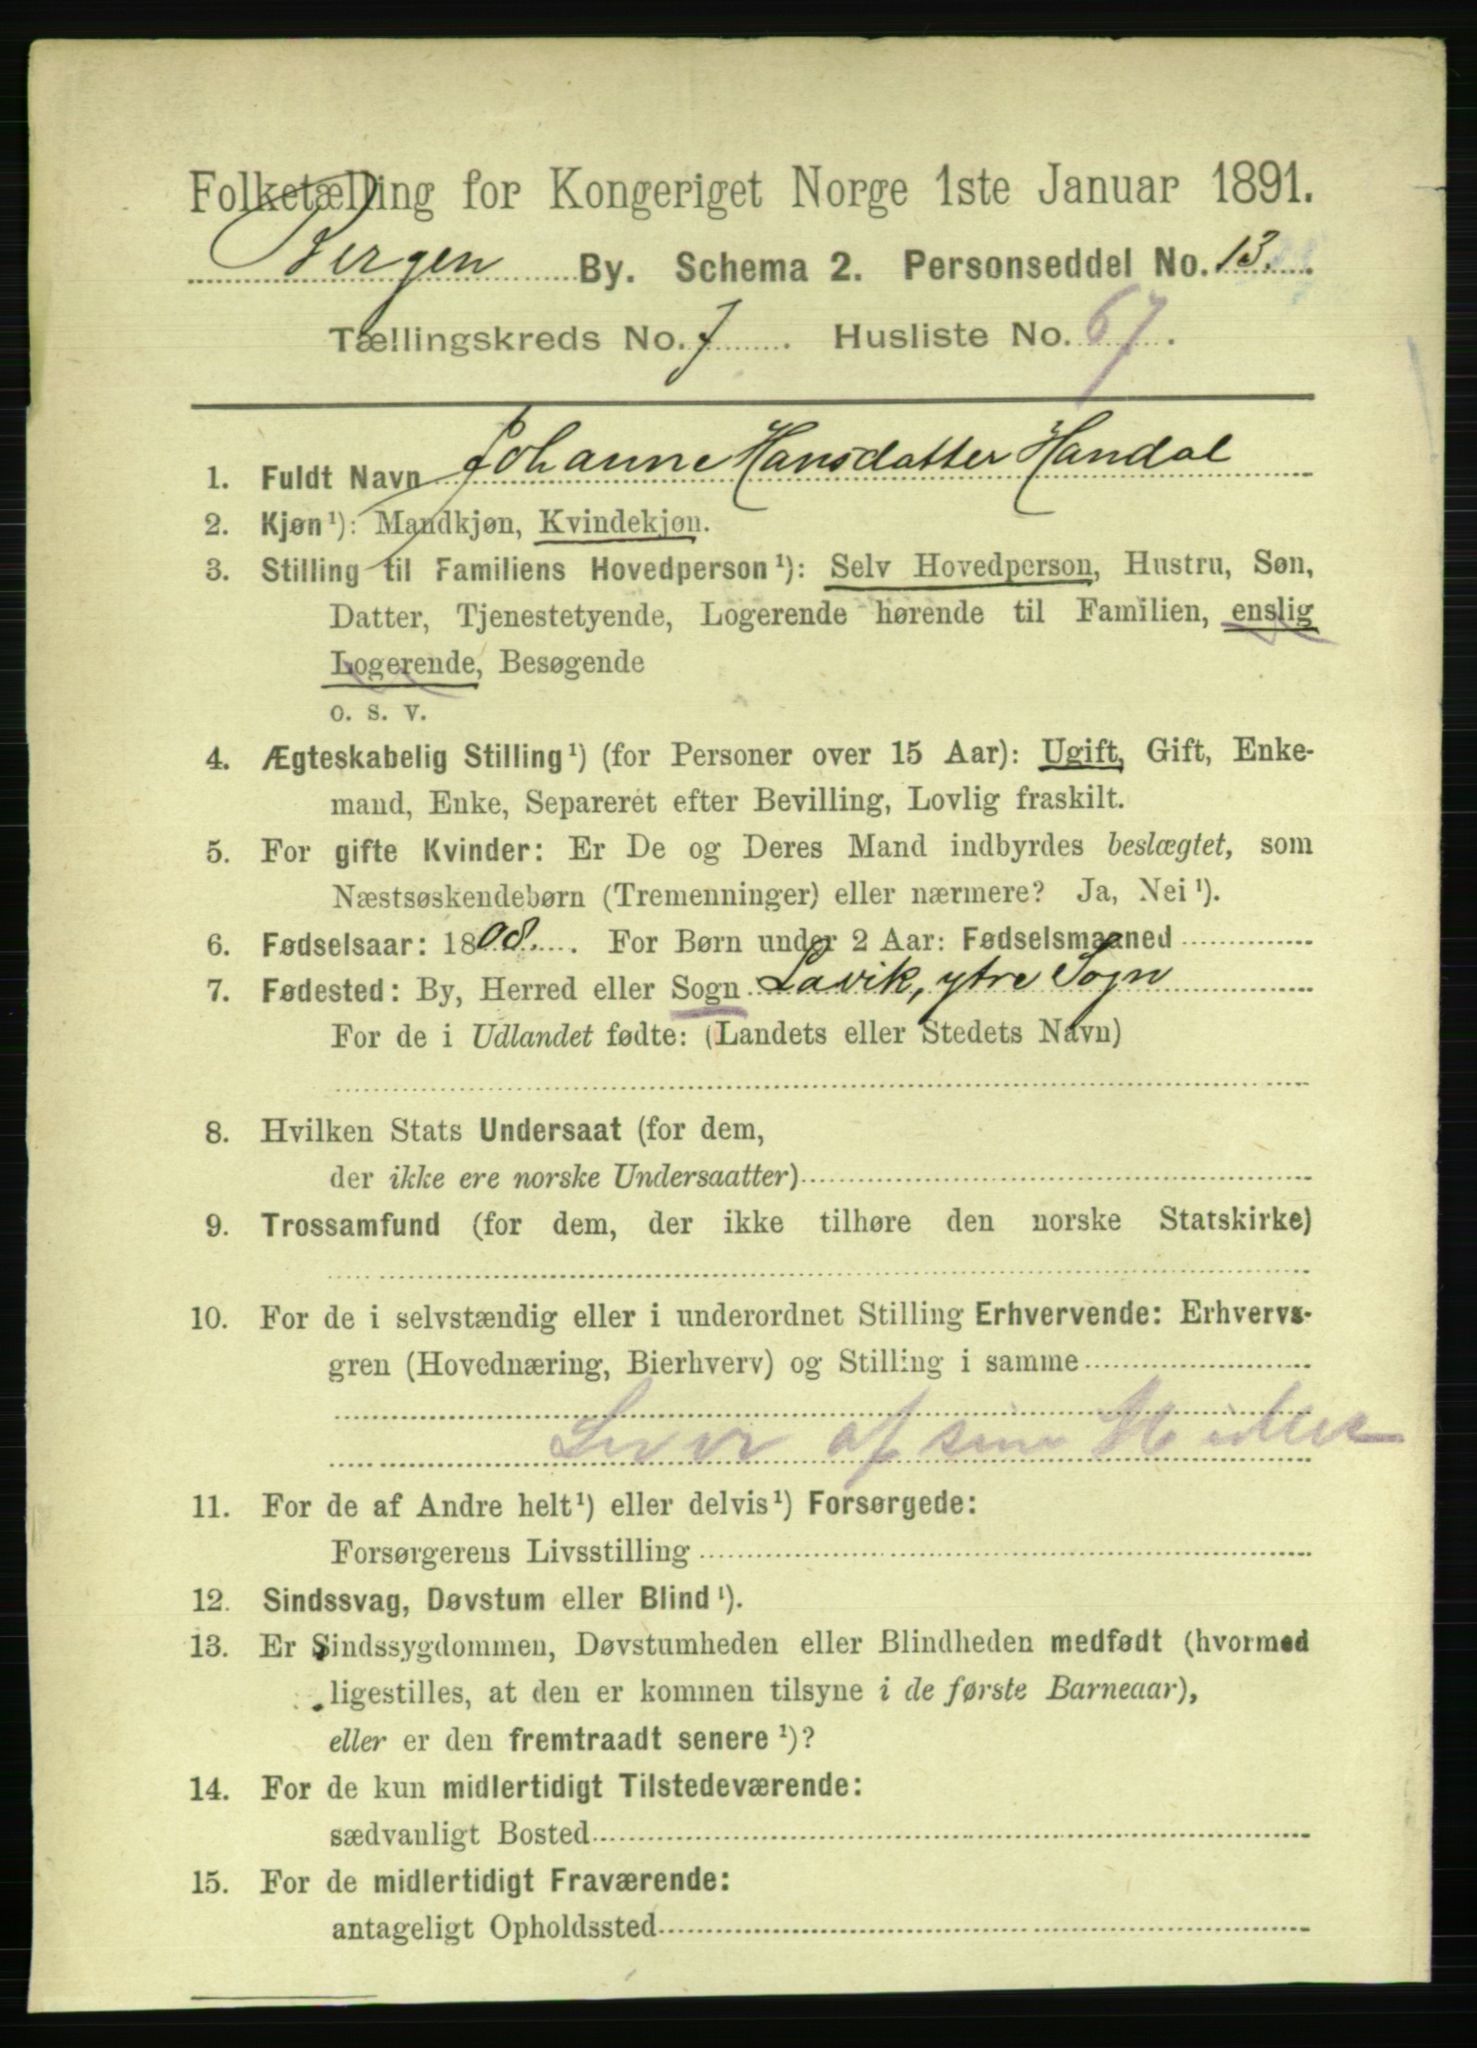 Folketælling for Kongeriget Norge 1ste Januar 1891.
Bergen By. Schema 2. Personseddel No. 13.
Tællingskreds No. 7. Husliste No. 67.
1. Fuldt Navn Johanne Hansdatter Handal
2. Kjøn¹): Mandkjøn, Kvindekjøn.
3. Stilling til Familiens Hovedperson¹): Selv Hovedperson, Hustru, Søn,
Datter, Tjenestetyende, Logerende hørende til Familien, enslig
Logerende, Besøgende
o. s. v.
4. Ægteskabelig Stilling¹) (for Personer over 15 Aar): Ugift, Gift, Enke-
mand, Enke, Separeret efter Bevilling, Lovlig fraskilt.
5. For gifte Kvinder: Er De og Deres Mand indbyrdes beslægtet, som
Næstsøskendebørn (Tremenninger) eller nærmere? Ja, Nei¹).
6. Fødselsaar: 1808. For Børn under 2 Aar: Fødselsmaaned
7. Fødested: By, Herred eller Sogn Lavik, ytre Sogn
For de i Udlandet fødte: (Landets eller Stedets Navn)
8. Hvilken Stats Undersaat (for dem,
der ikke ere norske Undersaatter)
9. Trossamfund (for dem, der ikke tilhøre den norske Statskirke)
10. For de i selvstændig eller i underordnet Stilling Erhvervende: Erhvervs-
gren (Hovednæring, Bierhverv) og Stilling i samme
Lever af sine Midler
11. For de af Andre helt¹) eller delvis¹) Forsørgede:
Forsørgerens Livsstilling
12. Sindssvag, Døvstum eller Blind¹).
13. Er Sindssygdommen, Døvstumheden eller Blindheden medfødt (hvormed
ligestilles, at den er kommen tilsyne i de første Barneaar),
eller er den fremtraadt senere¹)?
14. For de kun midlertidigt Tilstedeværende:
sædvanligt Bosted
15. For de midlertidigt Fraværende:
antageligt Opholdssted